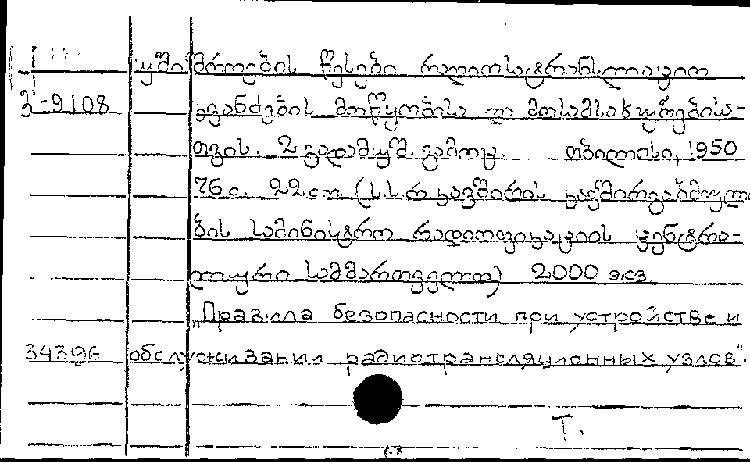 უშიშროების წესები რადიოსატრანსლაციო
3-9108 კვანძების მოწყობისა და მომსახურების-
თვის. 2 გადამუშ. გამოც. თბილისი, 1950
76 с. 22 см (ს.ს.რ. კავშირის კავშირგაბმულო
ბის სამინისტრო რადიოფიკაციის ცენტრა-
ლური სამმართველო) 2000 экз
„Правила безопасности при устройстве и
34396 обслуживании радиотрансляционных узлов".
Т.